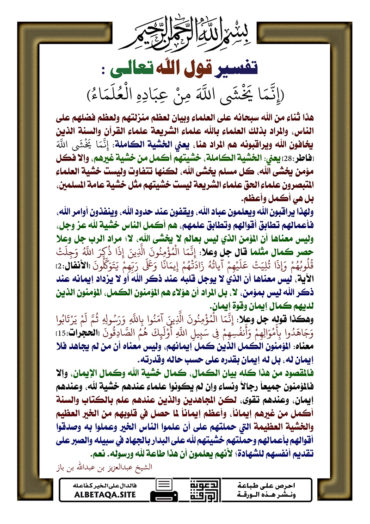 بسم الله الرحمن الرحيم
تفسير قول الله تعالى :
(إِنَّمَا يَخْشَى اللَّهَ مِنْ عِبَادِهِ الْعُلَمَاءُ)
هذا ثناء من الله سبحانه على العلماء وبيان لعظم منزلتهم ولعظم فضلهم على
الناس، والمراد بذلك العلماء بالله علماء الشريعة علماء القرآن والسنة الذين
يخافون الله ويراقبونه هم المراد هنا، يعني الخشية الكاملة: إِنَّمَا يَخْشَى اللَّهَ
[فاطر:28] يعني: الخشية الكاملة، خشيتهم أكمل من خشية غيرهم، وإلا فكل
مؤمن يخشى الله، كل مسلم يخشى الله، لكنها تتفاوت وليست خشية العلماء
المتبصرون علماء الحق علماء الشريعة ليست خشيتهم مثل خشية عامة المسلمين،
بل هي أكمل وأعظم.
ولهذا يراقبون الله ويعلمون عباد الله، ويقفون عند حدود الله، وينفذون أوامر الله،
فأعمالهم تطابق أقوالهم وتطابق علمهم، هم أكمل الناس خشية لله عز وجل،
وليس معناها أن المؤمن الذي ليس بعالم لا يخشى الله، لا؛ مراد الرب جل وعلا
حصر كمال مثلما قال جل وعلا: إِنَّمَا الْمُؤْمِنُونَ الَّذِينَ إِذَا ذُكِرَ اللَّهُ وَجِلَتْ
قُلُوبُهُمْ وَإِذَا تُلِيَتْ عَلَيْهِمْ آيَاتُهُ زَادَتْهُمْ إِيمَانًا وَعَلَى رَبِّهِمْ يَتَوَكَّلُونَ [الأنفال:2]
الآية، ليس معناها أن الذي لا يوجل قلبه عند ذكر الله أو لا يزداد إيمانه عند
ذكر الله ليس بمؤمن، لا، بل المراد أن هؤلاء هم المؤمنون الكمل، المؤمنون الذين
لديهم كمال إيمان وقوة إيمان.
وهكذا قوله جل وعلا: إِنَّمَا الْمُؤْمِنُونَ الَّذِينَ آمَنُوا بِاللَّهِ وَرَسُولِهِ ثُمَّ لَمْ يَرْتَابُوا
وَجَاهَدُوا بِأَمْوَالِهِمْ وَأَنفُسِهِمْ فِي سَبِيلِ اللَّهِ أُوْلَئِكَ هُمُ الصَّادِقُونَ [الحجرات:15]
معناه: المؤمنون الكمل الذين كمل إيمانهم، وليس معناه أن من لم يجاهد فلا
إيمان له، بل له إيمان بقدره على حسب حاله وقدرته.
فالمقصود من هذا كله بيان الكمال، كمال خشية الله وكمال الإيمان، وإلا
فالمؤمنون جميعا رجالا ونساء وإن لم يكونوا علماء عندهم خشية لله، وعندهم
إيمان، وعندهم تقوى، لكن المجاهدين والذين عندهم علم بالكتاب والسنة
أكمل من غيرهم إيمانا، وأعظم إيمانا لما حصل في قلوبهم من الخير العظيم
والخشية العظيمة التي حملتهم على أن علموا الناس الخير وعملوا به وصدقوا
أقوالهم بأعمالهم وحملتهم خشيتهم لله على البدار بالجهاد في سبيله والصبر على
تقديم أنفسهم للشهادة؛ لأنهم يعلمون أن هذا طاعة لله ورسوله. نعم.
الشيخ عبدالعزيز بن عبدالله بن باز
احرص على طباعة
ونشر هذه الورقة
فالدال على الخير كفاعله
ALBETAQA.SITE